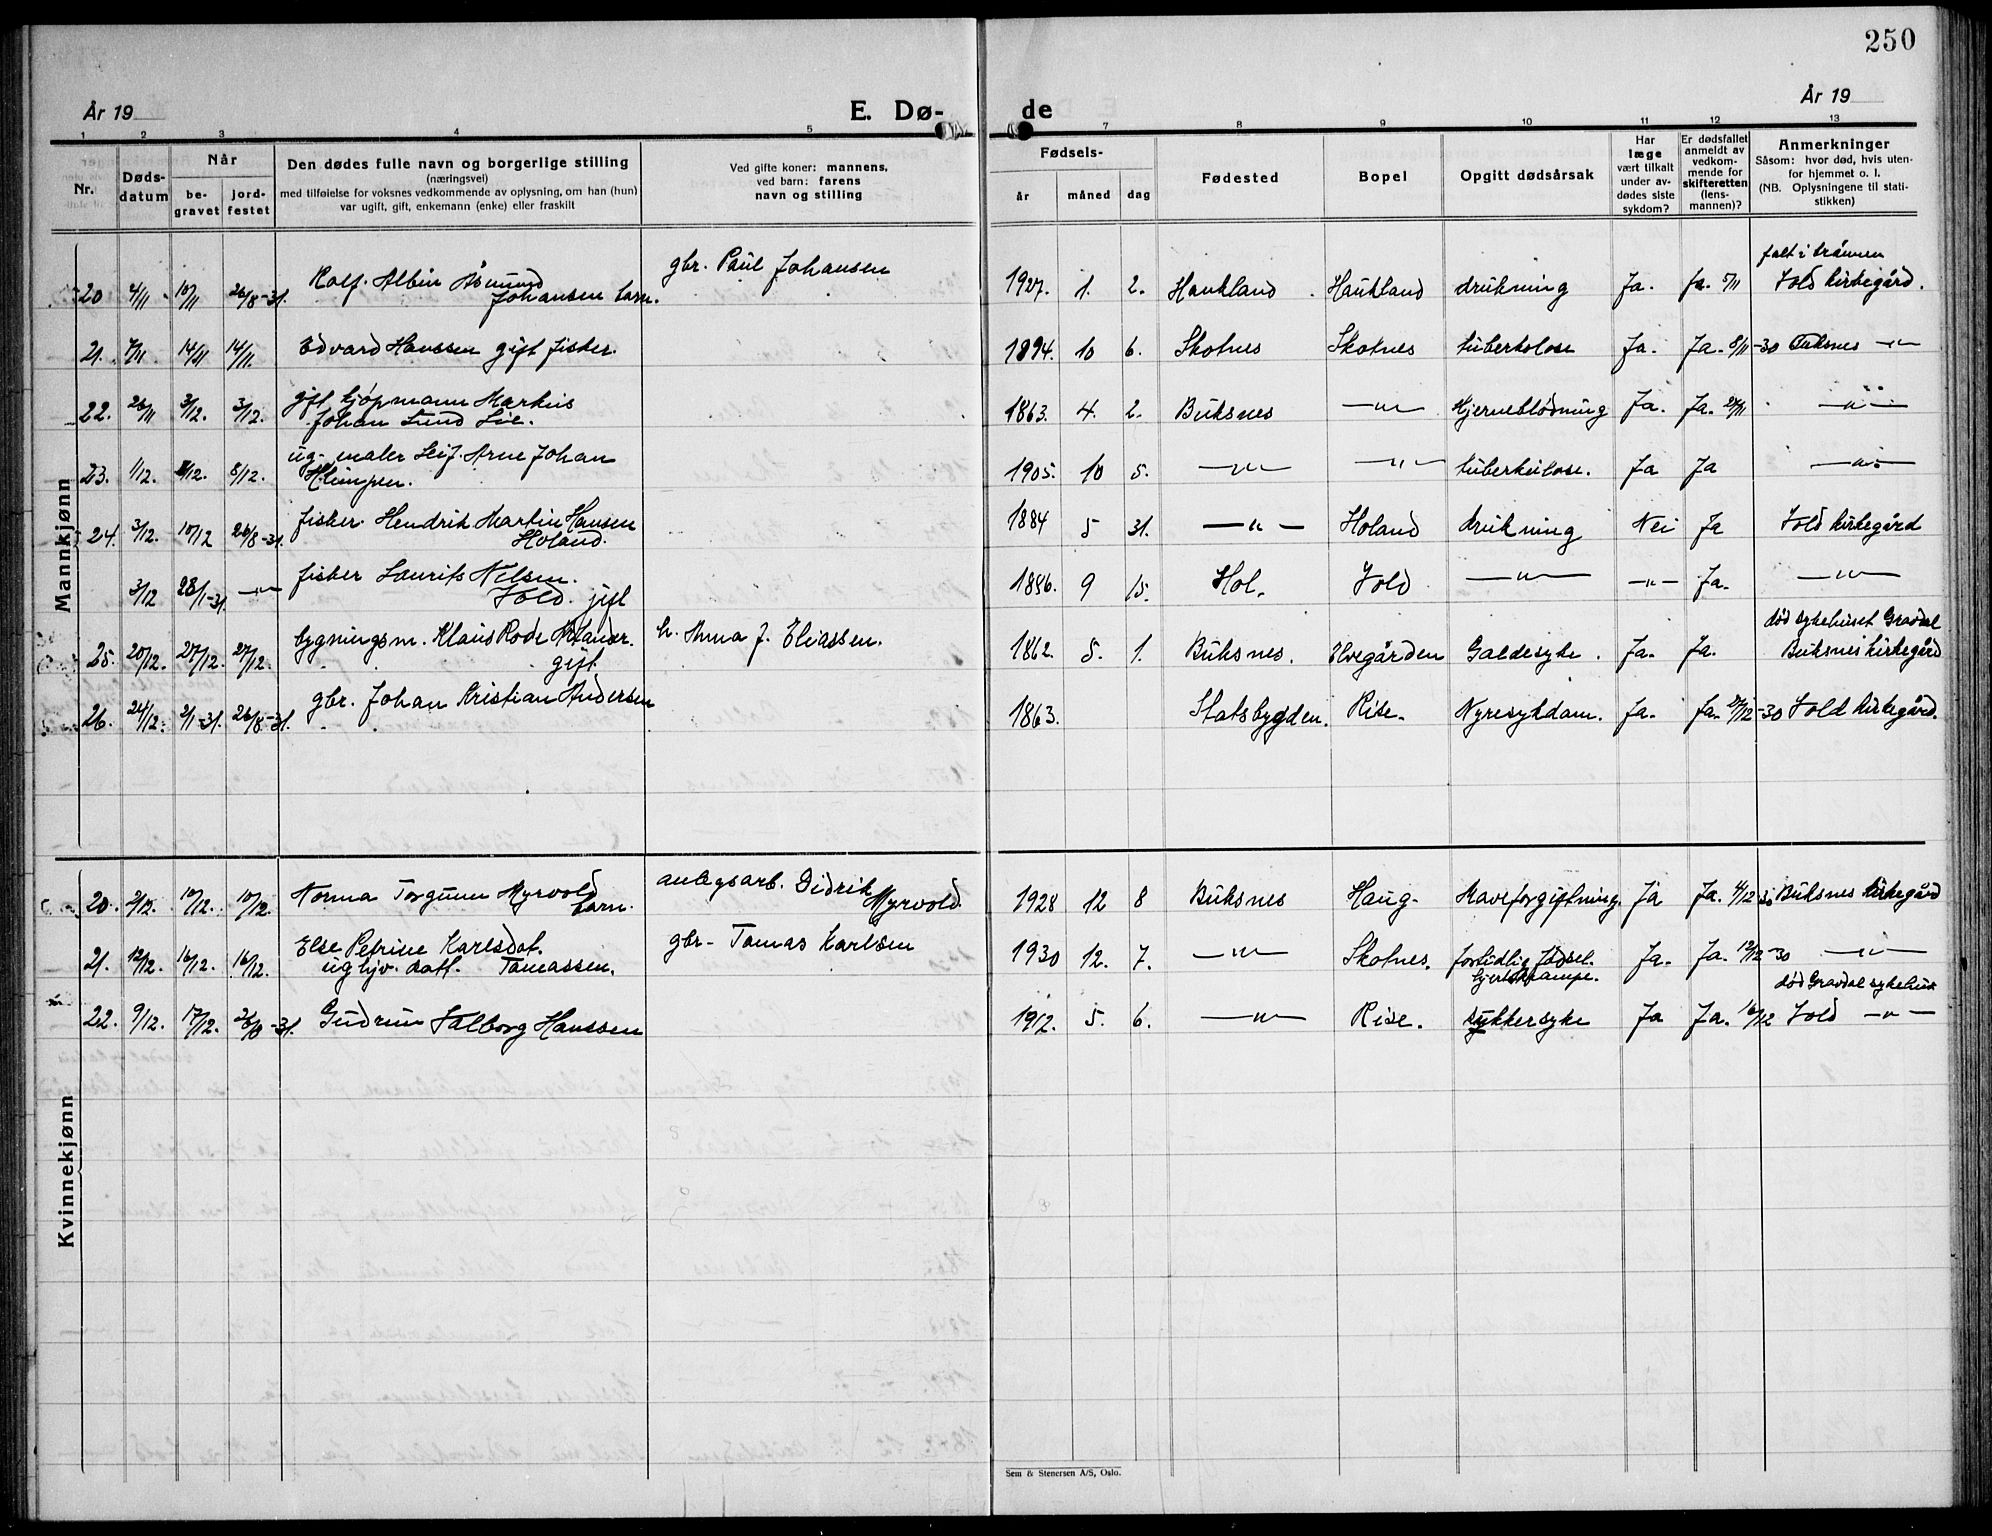 250
År 19 E. Dø- de År 19
1 2 3 4 5 7 8 9 10 11 12 13
Nr. Døds-datum Når be-gravet jord-festet
Den dødes fulle navn og borgerlige stilling
(næringsvei)
med tilføielse for voksnes vedkommende av oplysning, om han (hun)
var ugift, gift, enkemann (enke) eller fraskilt
Ved gifte koner: mannens,
ved barn: farens
navn og stilling
Fødsels-
år måned dag
Fødested
Bopel
Opgitt dødsårsak
Har
læge
vært tilkalt
under av-
dødes siste
sykdom?
Er dødsfallet
anmeldt av
vedkom-
mende for
skifteretten
(lens-
mannen)?
Anmerkninger
Såsom: hvor død, hvis uten-
for hjemmet o. l.
(NB. Oplysningene til stati-
stikken)
Mannkjønn
20 4/11 10/11 26/8-31. Rolf Albin Åsmund Johansen barn. gbr. Paul Johansen 1927. 1. 2. Haukland Haukland drukning Ja. Ja. 5/11 falt i brønnen Vold kirkegård.
21. 7/11 14/11 14/11. Edvard Hanssen gift fisker. 1894. 10 6. Skotnes Skotnes tuberkolose Ja. Ja. 8/11-30 Buksnes —"—
22. 26/11 3/12. 3/12. gift kjøpmann Markus Johan Lund Lie. 1863. 4. 2. Buksnes —"— Hjerneblødning Ja. Ja. 27/11 —"—
23. 1/12. 8/12. 8/12. ug. maler Leif Arne Johan 1905. 10 5. —"— —"— tuberkulose. Ja Ja —"—
24. 3/12. 10/12 26/8-31. fisker Hendrik Martin Hansen Holand. 1884 5 31. —"— Holand drukning Nei Ja Vold kirkegård
3/12 28/1-31. —"— fisker Laurits Nilsen Vold. gift 1886. 9 15. Hol. Vold —"— —"— Ja. —"—
25. 20/12. 27/12. 27/12. bygningsm. Klaus Rode gift h. Anna J. Eliassen. 1862. 5. 1. Buksnes. Elvegården Galdesyke. Ja. Ja. død sykehuset Gravdal Buksnes kirkegård
26. 24/12. 2/1-31. 26/8-31. gbr. Johan Kristian Andersen 1863. Statsbygden. Rise. Nyresykdom. Ja. Ja. 27/12-30 Vold kirkegård.
Kvinnekjønn
20. 2/12. 10/12. 10/12. Norma Torgunn Myrvold barn. anlegsarb. Didrik Myrvold 1928 12 8 Buksnes Haug. Maveforgiftning. Ja Ja. 4/12-30 Buksnes kirkegård
21. 12/12. 16/12. 16/12. Else Petrine Karlsdat. Tomassen. gbr. Tomas Karlsen 1930 12. 7. —"— Skotnes. fortidlig fødsel. hjertekrampe. Ja. Ja. 12/12-30 —"—
22. 9/12. 17/12. 26/8-31. Gudrun Valborg Hanssen 1912. 5. 6. —"— Rise. sukkersyke Ja Ja. 16/12 død Gravdal sykehus Vold —"—
Sem & Stenersen A/S, Oslo.